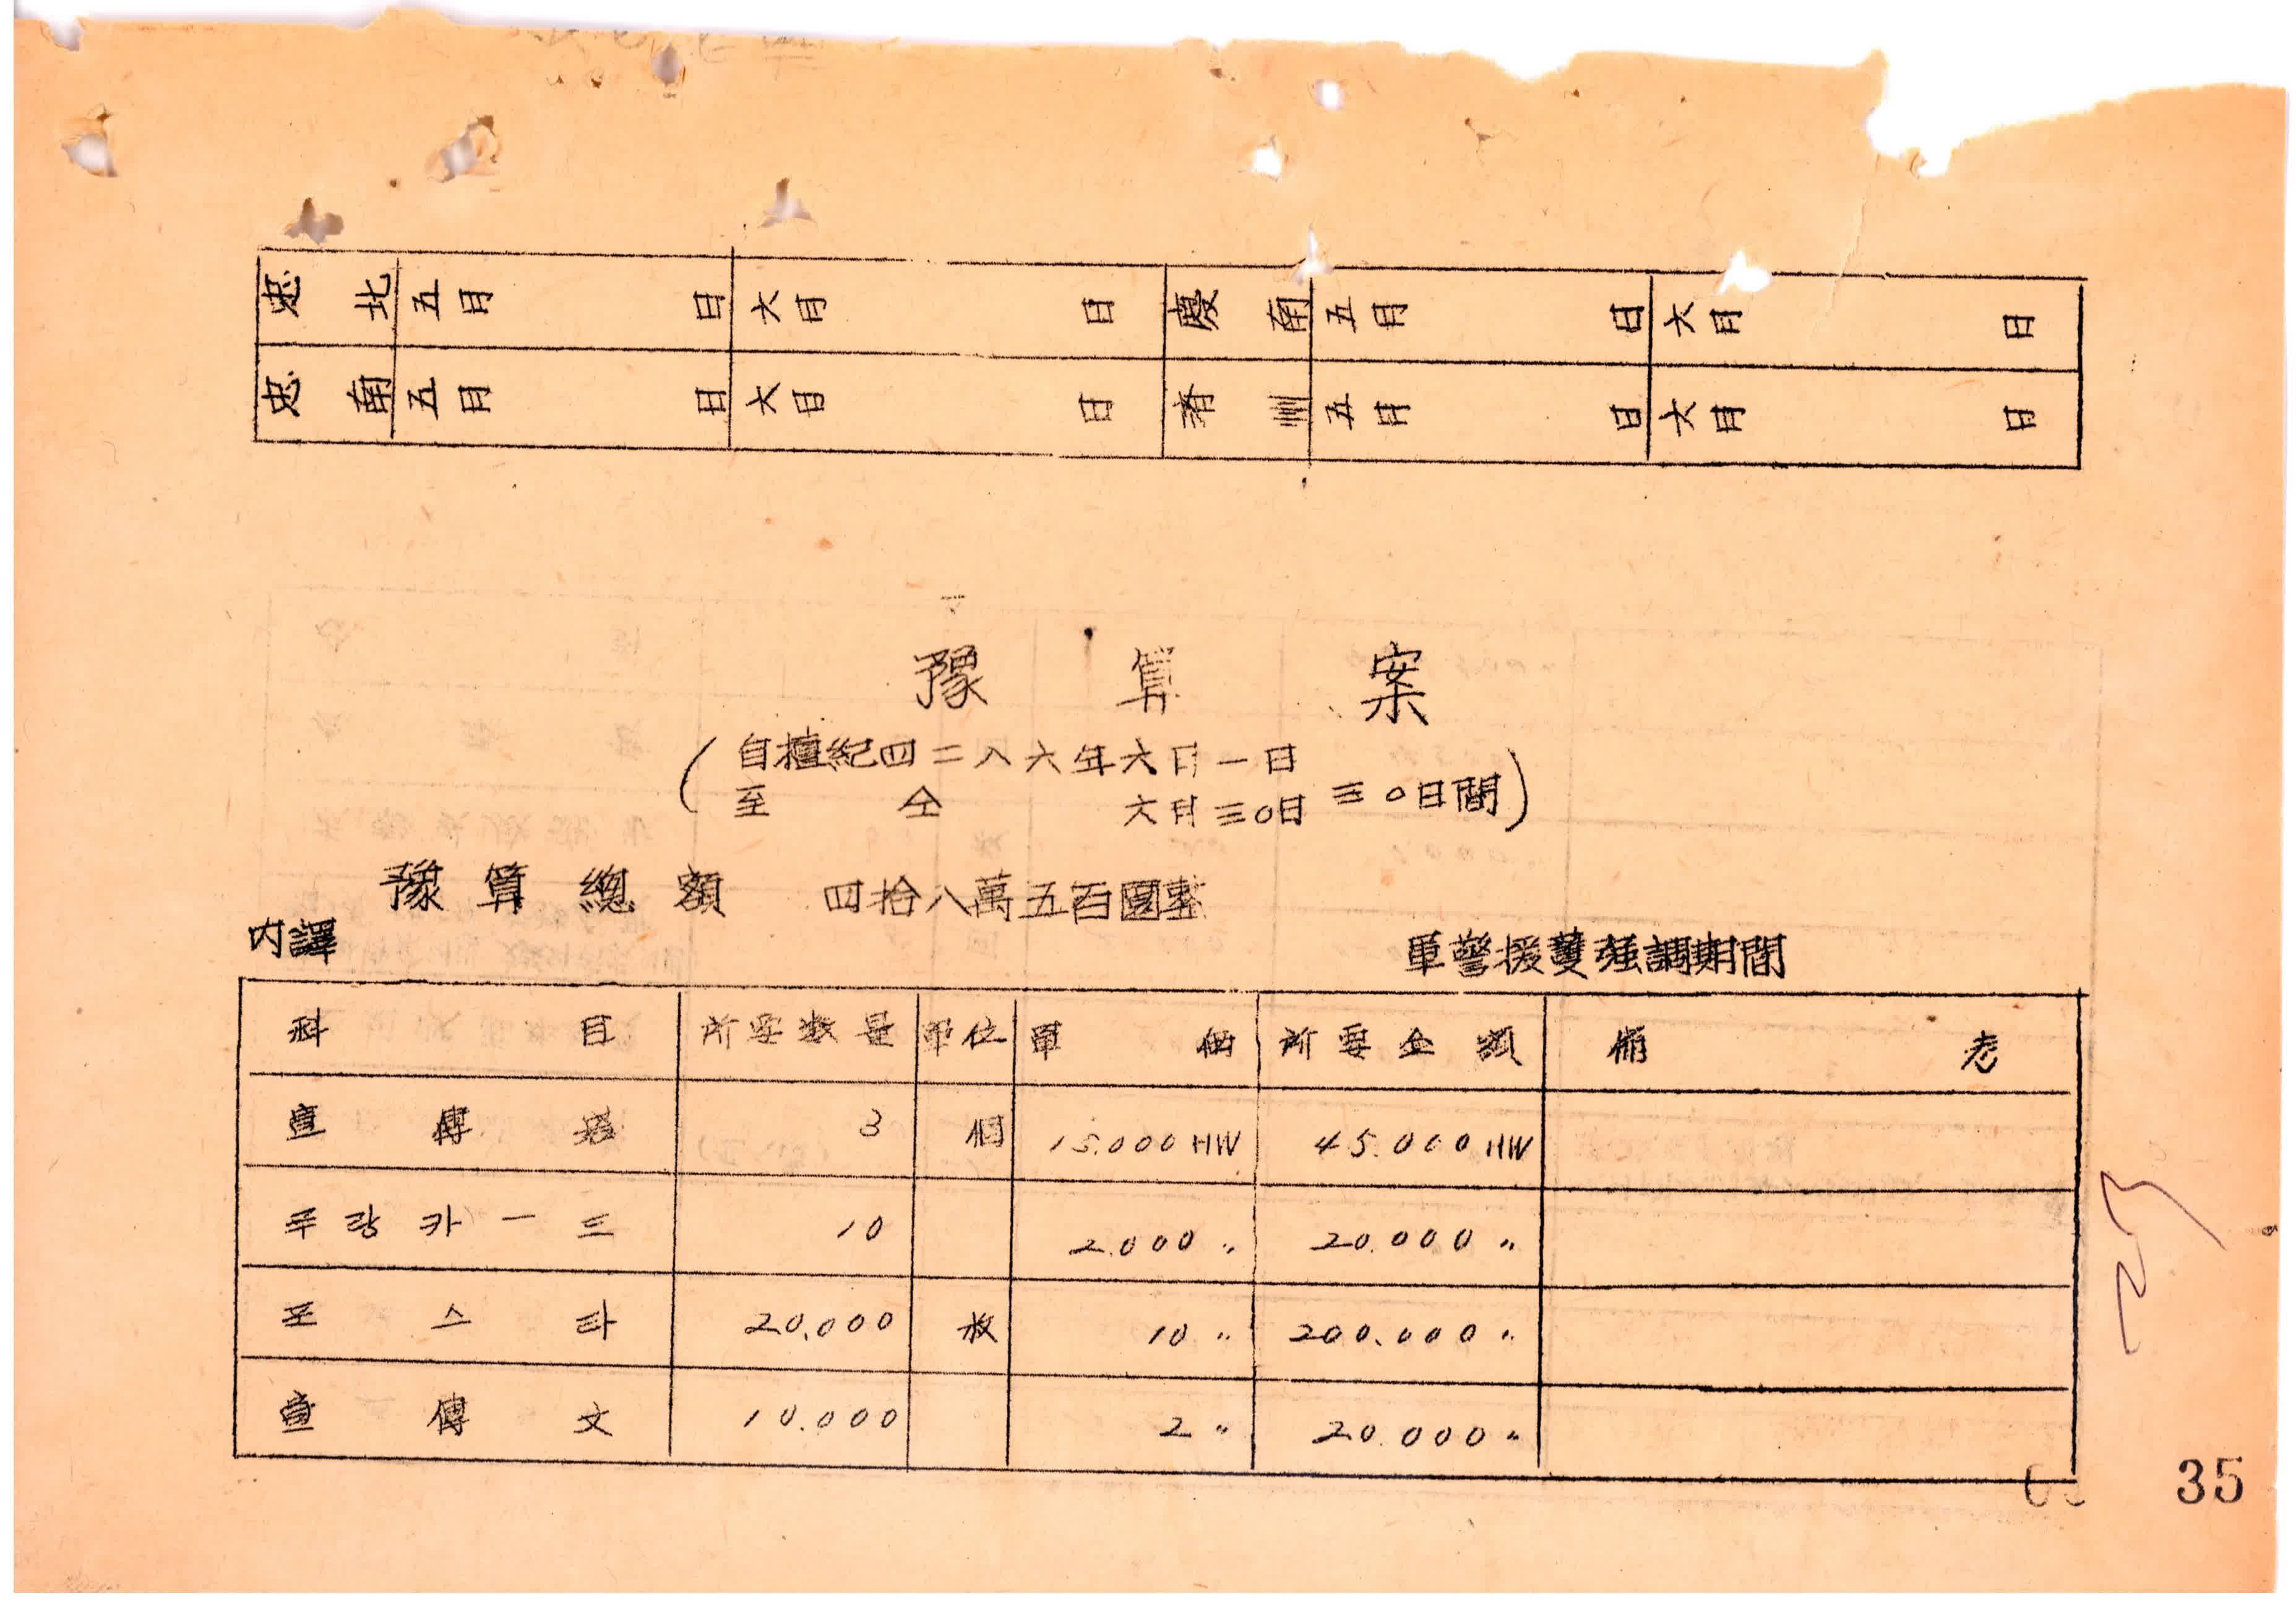 忠 北 五月 日 六月 日 慶 南 五月 日 六月 日
忠 南 五月 日 六月 日 濟 州 五月 日 六月 日
豫 算 案
(自檀紀四二八六年六月一日
至 仝 六月三0日 三0日間)
豫 算 總 額 四拾八萬五百圜整
内譯
軍警援護强調期間
科 目 所要数量 單位 單 価 所要金額 備 考
宣 傳 塔 3 個 15.000HW 45.000HW
푸랑카ー드 10 2.000〃 20.000〃
포 스 타 20.000 枚 10〃 200.000〃
宣 傳 文 10.000 2〃 20.000〃
35